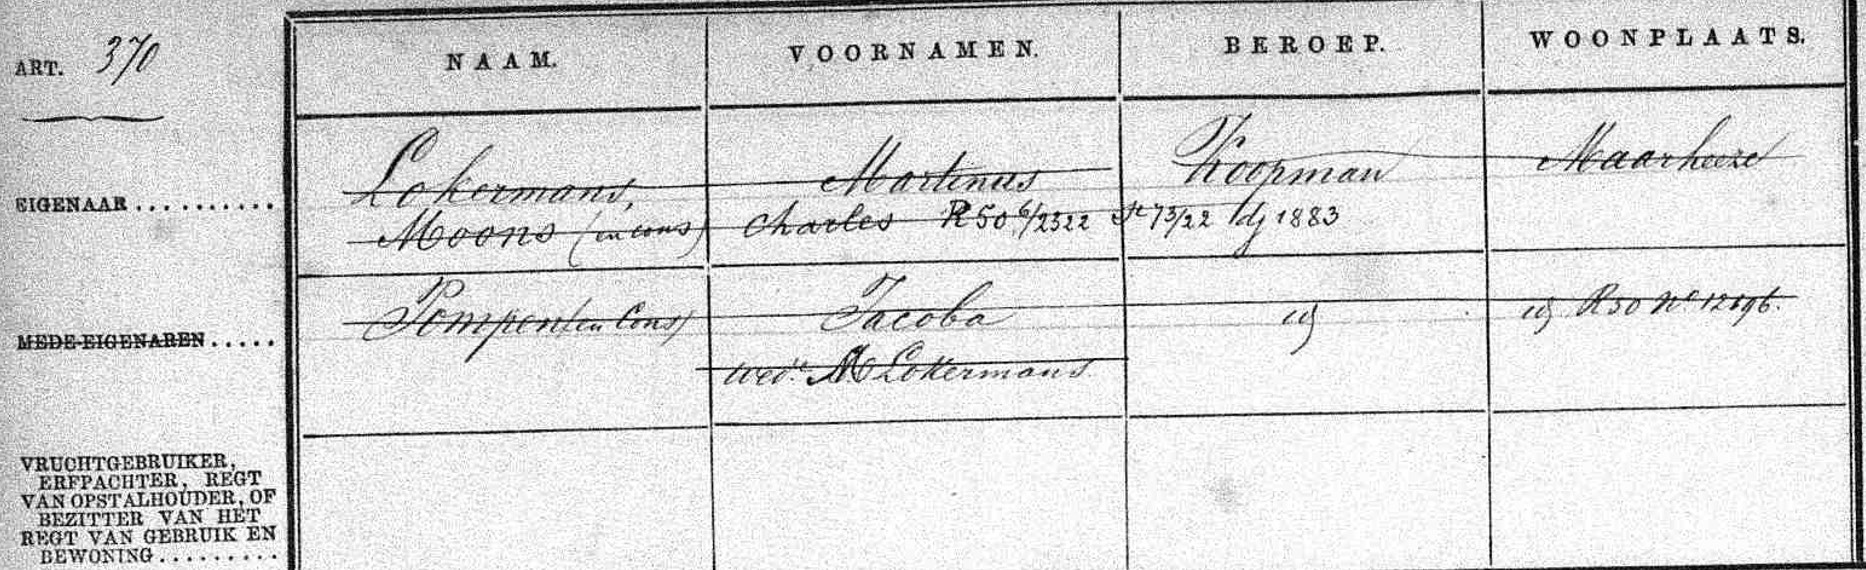 ART. 370
NAAM. VOORNAMEN. BEROEP. WOONPLAATS.
EIGENAAR..........
Lokermans, Martinus Koopman Maarheeze
Moons (en cons) Charles R50 6/2322 St 73/22 dj 1883
MEDE-EIGENAREN.....
Pompen (en Cons) Jacoba id id R50 No 12696.
wed.e M Lokermans
VRUCHTGEBRUIKER,
ERFPACHTER, REGT
VAN OPSTALHOUDER, OF
BEZITTER VAN HET
REGT VAN GEBRUIK EN
BEWONING.........